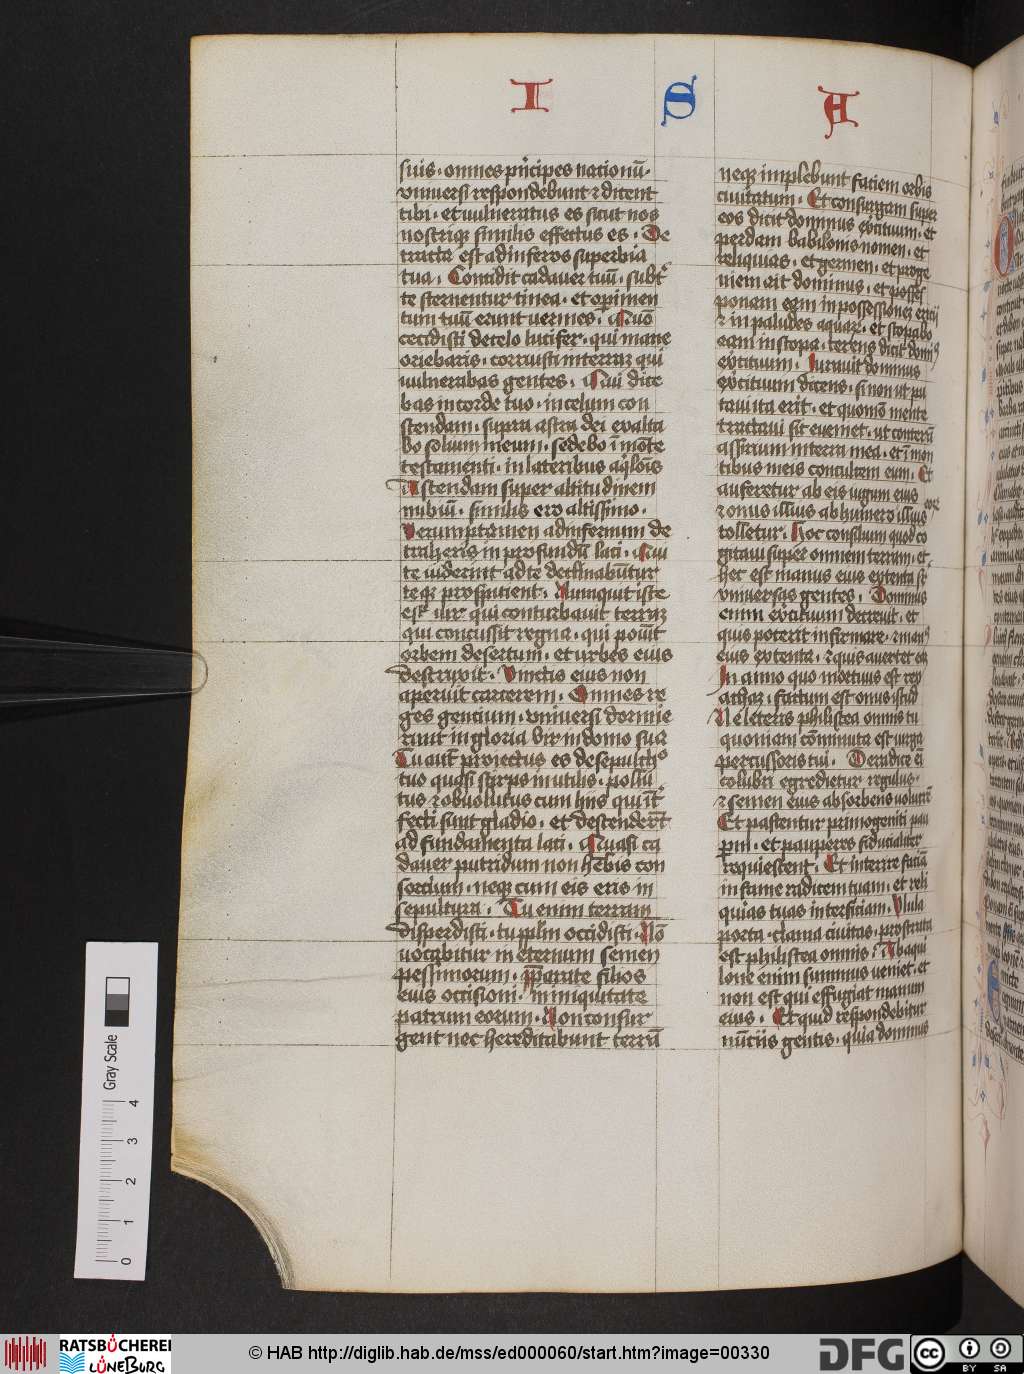 I S A
suis · omnes pͥncipes nationū ·
vniuersi respondebunt ⁊ dicent
tibi · et vulneratus es sicut nos
nostriqꝫ similis effectus es · De
tracta est ad inferos superbia
tua · Concidit cadauer tuū · subt᷑
te sternentur tinea · et operimen
tum tuū erunt vermes · Quō
cecidisti de celo lucifer · qui mane
oriebaris · corruisti in terraꝫ qui
vulnerabas gentes · Qui dice
bas in corde tuo · in celum con
scendam · supra astra dei exalta
bo solium meum · sedebo ī mōte
testamenti · in lateribus aq̇lonis
Ascendam super altitudinem
nubiū · similis ero altissimo ·
Verumptamen ad infernum de
traheris in profundū laci · Qui
te viderint ad te declinabūtur
teqꝫ prospicient · Nunquit iste
est vir qui conturbauit terraꝫ
qui concussit regna · qui posuit
orbem desertum · et vrbes eius
destruxit · Vinctis eius non
aperuit carcerem · Omnes re
ges gencium · vniuersi dormie
runt in gloria vir in domo sua
Tu aut̄ proiectus es de sepulchͦ
tuo quasi stirps inutilis · pollu
tus ⁊ obuolutus cum hiis qui īt᷑
fecti sunt gladio · et descenderūt
ad fundamenta laci · Quasi ca
dauer putridum non hēbis con
sorcium · neqꝫ cum eis eris in
sepultura · Tu enim terram
disperdisti · tu pplm occidisti · Nō
vocabitur in eternum semen
pessimorum · p̄parate filios
eius occisioni · in iniquitate
patrum eorum · Non consur
gent nec hereditabunt terrā
neqꝫ implebunt faciem orbis
ciuitatum · Et consurgam super
eos dicit dominus exercituum · et
perdam babilonis nomen · et
reliquias · et germen · et proge
niem ait dominus · et posses
ponam eam in possessionem ericii
⁊ in paludes aquaꝝ · et scopabo
eam in scopa · terens dicit domīꝰ
exercituum · Iurauit dominus
exercituum dicens · si non vt pu
taui ita erit · et quomō mente
tractaui sic eueniet · vt conterā
assirium in terra mea · et ī mon
tibus meis conculcem eum · Et
auferetur ab eis iugum eius
⁊ onus illius ab humero illius eoꝝ
tolletur · Hoc consilium quod co
gitaui super omnem terram · et
hec est manus eius extenta sr̄
vniuersas gentes · Dominus
enim exercituum decreuit · et
quis poterit infirmare · ⁊ manꝰ
eius extenta · ⁊ quis auertet eā
In anno quo mortuus est rex
achaz · factum est onus istud
Ne leteris philistea omnis tu
quoniam cōminuta est virga
percussoris tui · De radice eī
colubri egredietur regulus ·
⁊ semen eius absorbens volucrē
Et pascentur primogeniti pau
perum · et pauperes fiducialiter
requiescent · Et interire faciā
in fame radicem tuam · et reli
quias tuas interficiam · Vlula
porta · clama ciuitas · prostrata
est philistea omnis · Ab aqui
lone enim fumus veniet · et
non est qui effugiat manum
eius · Et quid respondebitur
nūciis gentis · quia dominus
Gray Scale
4 3 2 1 0
RATSBÜCHEREI
LÜNEBURG
© HAB http://diglib.hab.de/mss/ed000060/start.htm?image=00330
DFG
cc BY SA